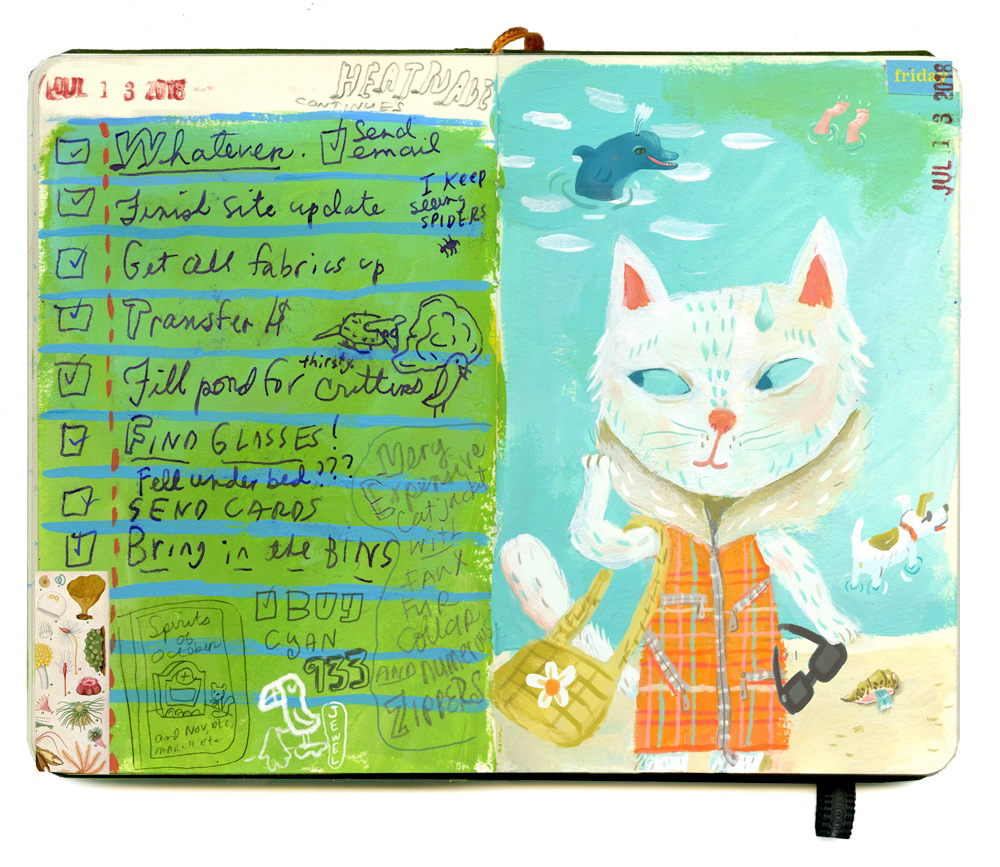 JUL 13 2018
HEATWAVE
CONTINUES
Whatever.
Send
email
Finish site update
I Keep
seeing
SPIDERS
Get all fabrics up
Transfer $
Fill pond for thirsty critters
FIND GLASSES!
Fell under bed???
SEND CARDS
Bring in the BINS
BUY
CYAN
933
JEWEL
Very
Expensive
Cat jacket
with
FAUX
Fur
Collar
AND numerous
ZIPPERS
Spirits
of
October
and Nov, Dec,
MARCH etc.
friday
JUL 13 2018